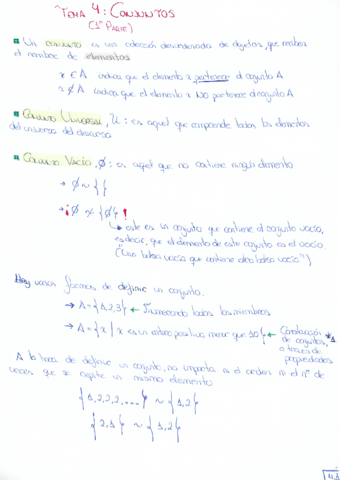 TEMA 4: CONJUNTOS
(1ª PARTE)
Un conjunto es una colección desordenada de objetos, que reciben
el nombre de elementos
x ∈ A indica que el elemento x pertenece al conjunto A
x ∉ A indica que el elemento x NO pertenece al conjunto A
CONJUNTO UNIVERSAL, U: es aquel que comprende todos los elementos
del universo del discurso
CONJUNTO VACÍO, ∅: es aquel que no contiene ningún elemento
→ ∅ ~ { }
→ ¡∅ ≁ {∅}!
este es un conjunto que contiene al conjunto vacío,
es decir, que el elemento de este conjunto es el vacío.
("Una bolsa vacía que contiene otra bolsa vacía")
Hay varias formas de definir un conjunto.
→ A = {1,2,3} ← Enumerando todos los miembros
→ A = {x | x es un entero positivo menor que 10} ← Construcción *1
de conjuntos,
a través de
propiedades
A la hora de definir un conjunto, no importa ni el orden ni el nº de
veces que se repite un mismo elemento
{1,2,2,2,...} ~ {1,2}
{2,1} ~ {1,2}
4.1